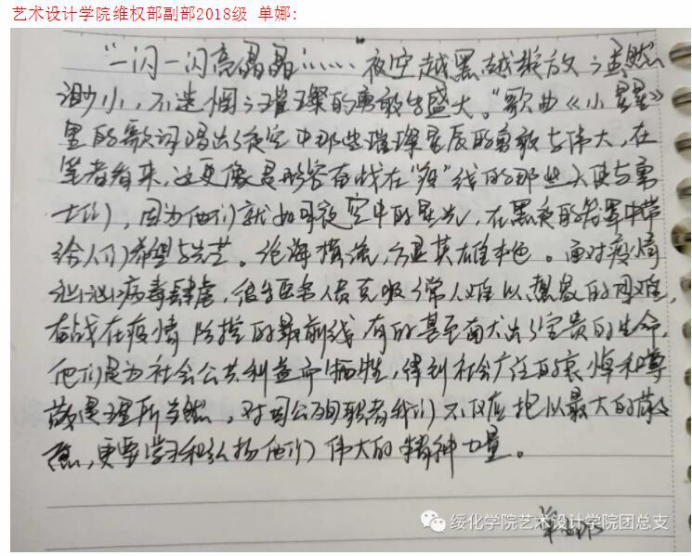 艺术设计学院维权部副部2018级 单娜:
"一闪一闪亮晶晶……夜空越黑越绽放,虽然
渺小,不迷惘,璀璨的勇敢与盛大。"歌曲《小星星》
里的歌词唱出了夜空中那些璀璨星辰的勇敢与伟大,在
笔者看来,这更像是形容奋战在"疫"线的那些天使与勇
士们,因为他们就如同夜空中的星光,在黑夜的笼罩中带
给人们希望与光芒。沧海横流,方显英雄本色。面对疫情
汹汹病毒肆虐,很多医务人员克服了常人难以想象的困难,
奋战在疫情防控的最前线,有的甚至献出了宝贵的生命,
他们是为社会公共利益而牺牲,得到社会广泛的哀悼和尊
敬是理所当然,对因公殉职者我们不仅应报以最大的敬
意,更要学习和弘扬他们伟大的精神力量。
单娜
绥化学院艺术设计学院团总支